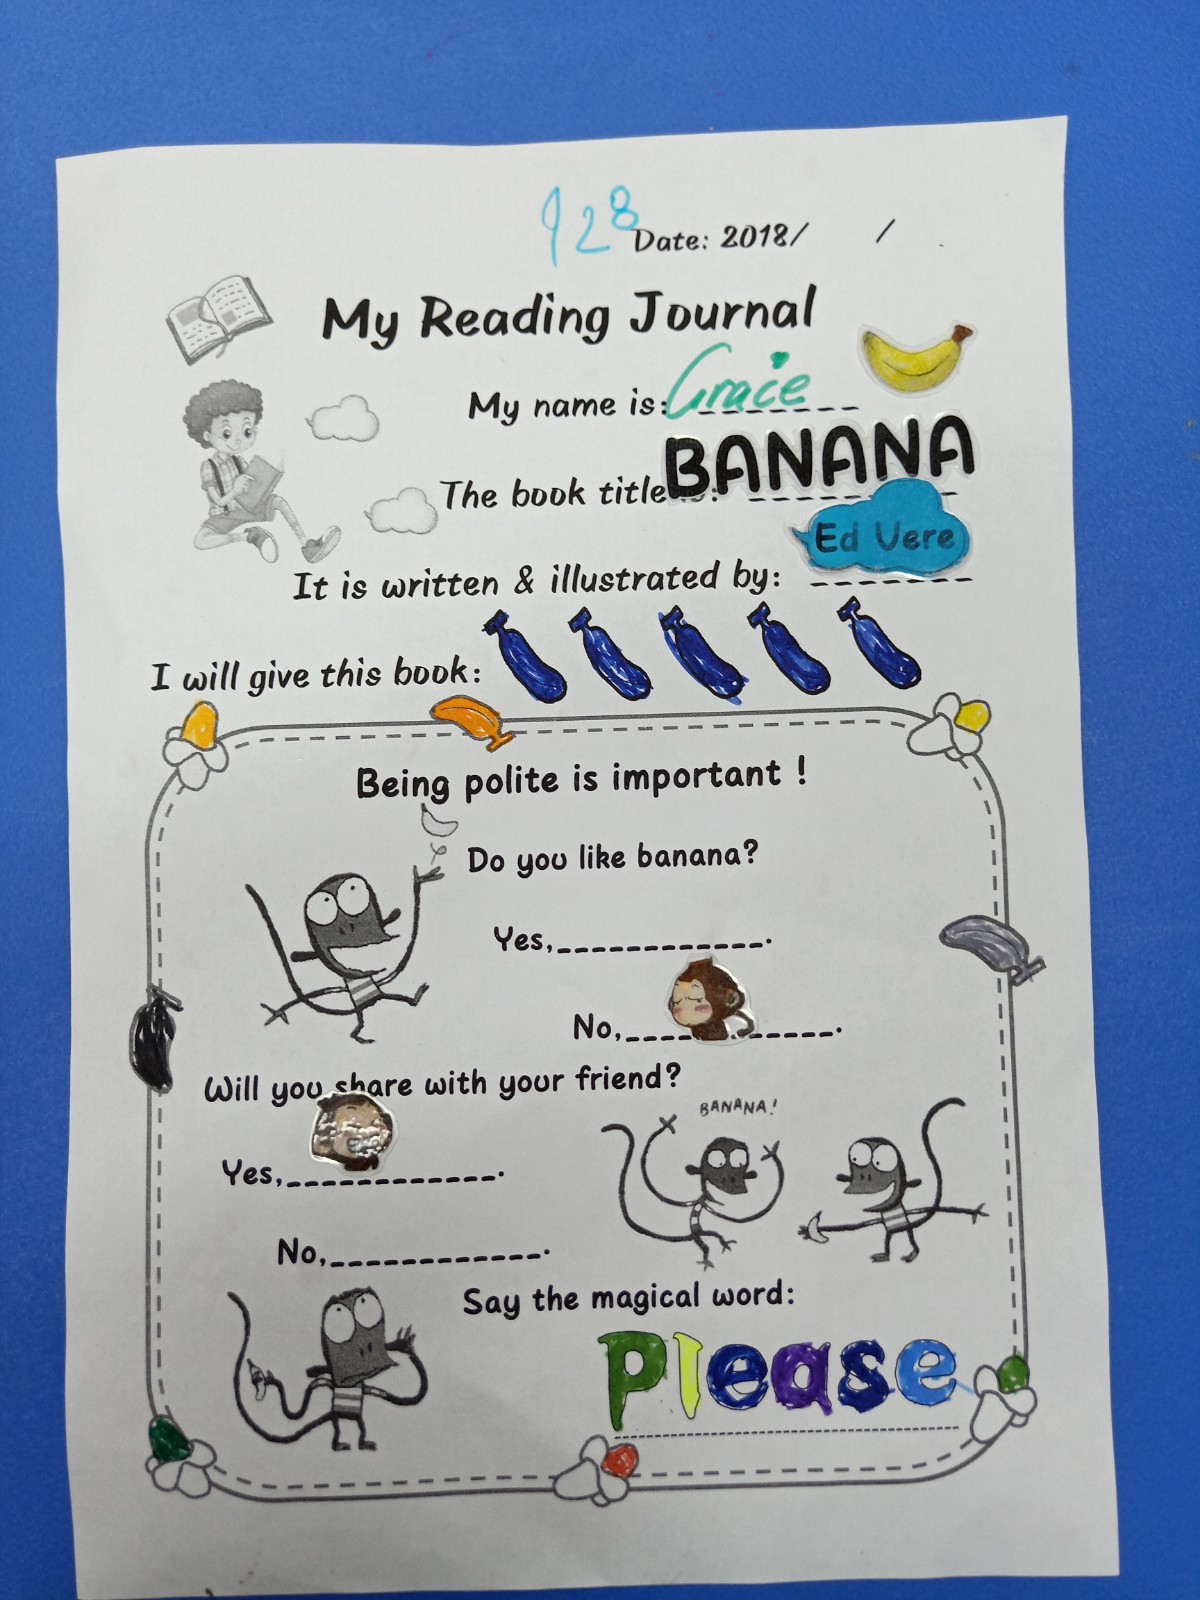 928
Date: 2018/ /
My Reading Journal
My name is: Grace
The book title is: BANANA
Ed Vere
It is written & illustrated by:
I will give this book:
Being polite is important !
Do you like banana?
Yes,____________.
No,____________.
Will you share with your friend?
BANANA!
Yes,____________.
No,____________.
Say the magical word:
Please